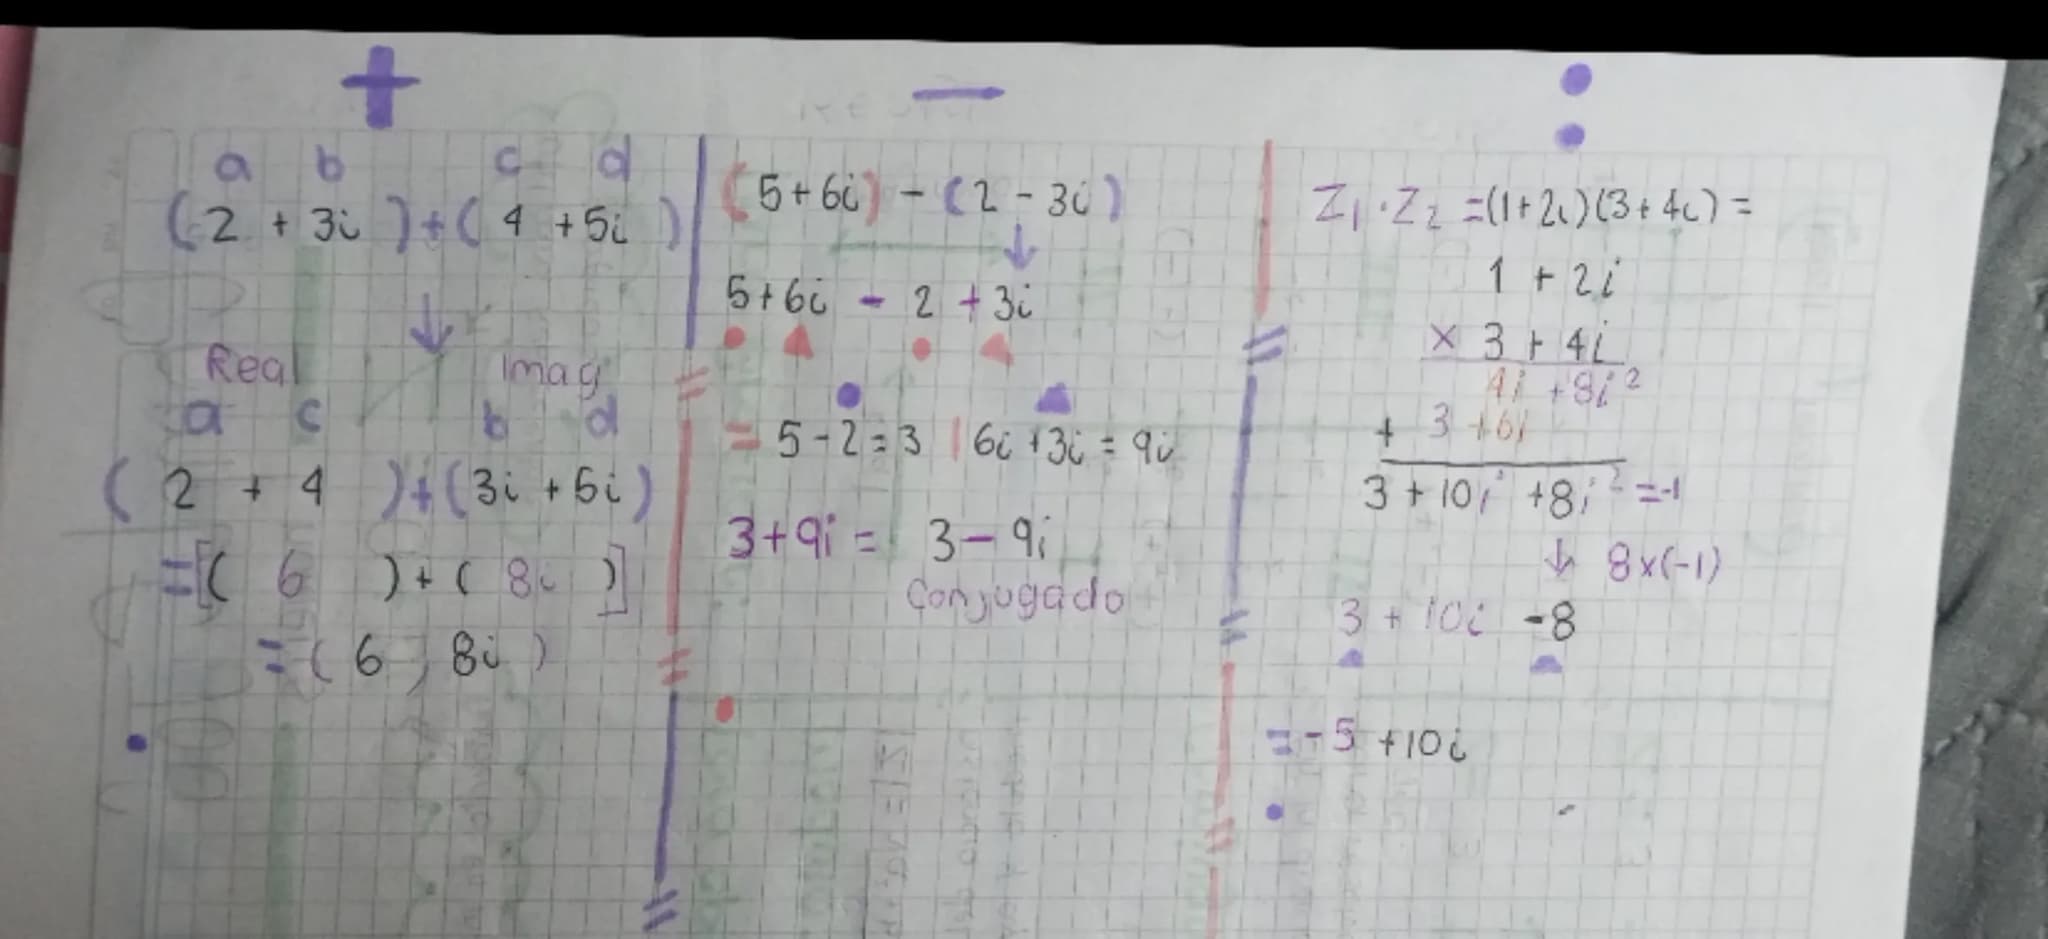 +
a b c d
(2 + 3i) + (4 + 5i)
↓
Real Imag
a c b d
(2 + 4) + (3i + 5i)
= [(6) + (8i)]
= (6, 8i)
−
(5+6i) - (2 - 3i)
↓
5+6i - 2 + 3i
= 5-2=3 | 6i+3i = 9i
3+9i = 3-9i
Conjugado
:
Z1 · Z2 = (1+2i)(3+4i) =
1 + 2i
x 3 + 4i
4i + 8i²
+ 3 + 6i
3 + 10i + 8i² = -1
↓ 8x(-1)
3 + 10i - 8
= -5 + 10i